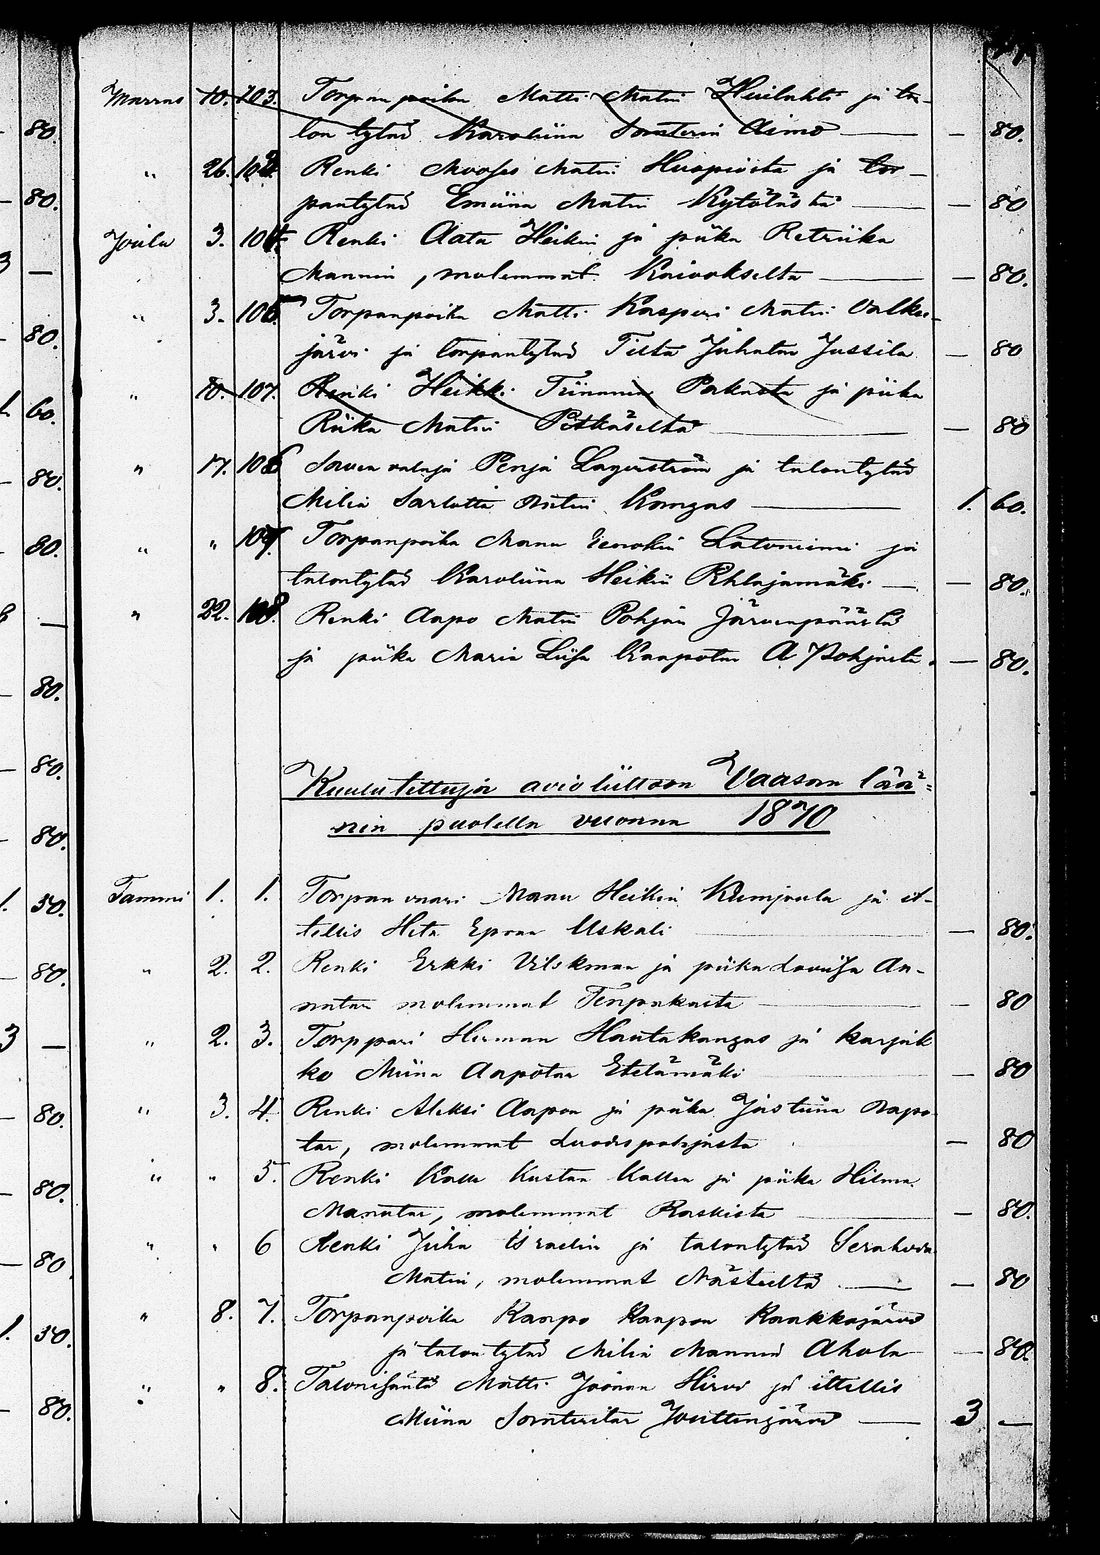 80.
80.
3 —
80.
1. 60.
80.
80.
—
80.
80.
80.
1. 50.
80.
3 —
80.
80.
80
1. 50.
80.
Marras 10. 103. Torpan poika Matti Matin Heilahti ja ta-
lon tytär Karoliina Asimo — 80.
" 26. 103. Renki Mooses Matin ja tor-
pantytär Emiina Matin Kytölästä — 80
Joulu 3. 104. Renki Aata Heikin ja piika Retriika
Mannin, molemmat Kaivokselta — 80.
" 3. 105 Torpanpoika Matti Kasperi Matin Valkei-
järvi ja torpantytär Tilta Juhatar Jussila — 80
" 10. 107. Renki Heikki ja piika
Riika Matin Pitkäseltä — 80
" 17. 106 Penja Lagerström ja talontytär
Milia Sarlotta Antin Kangas 1. 60.
" " 107. Torpanpoika Manu Eenokin Latoniemi ja
talontytär Karoliina Heikin — 80.
" 22. 108. Renki Aapo Matin Pohjan Järvenpäästä
ja piika Maria Liisa Kaapotar A Pohjasta. — 80.
Kuulutettuja avioliittoon Vaasan lää-
nin puolella vuonna 1870
Tammi 1. 1. Torpan vaari Manu Heikin Kumpula ja it-
tellis Heta Epran Uskali — 80.
" 2. 2. Renki Erkki Vilskman ja piika Lovisa An-
natar molemmat — 80
" 2. 3. Torppari Herman Hautakangas ja karjak
ko Miina Aapotar Etelämäki — 80
" 3. 4. Renki Aleksi Aapon ja piika Justiina Aapo
tar, molemmat Luodespohjasta — 80
" " 5. Renki Kalle Kustaa Kallen ja piika Hilma
Manutar, molemmat Raskista — 80.
" " 6 Renki Juha Israelin ja talontytär Serahviia
Matin, molemmat — 80
" 8. 7. Torpanpoika Kaapo Kaapon Kaakkojärvi
ja talontytär Milia Mannin Ahola — 80.
" " 8. Talonisäntä Matti Joonan Hirvi ja ittellis
Miina Jouttenjärvi 3 —